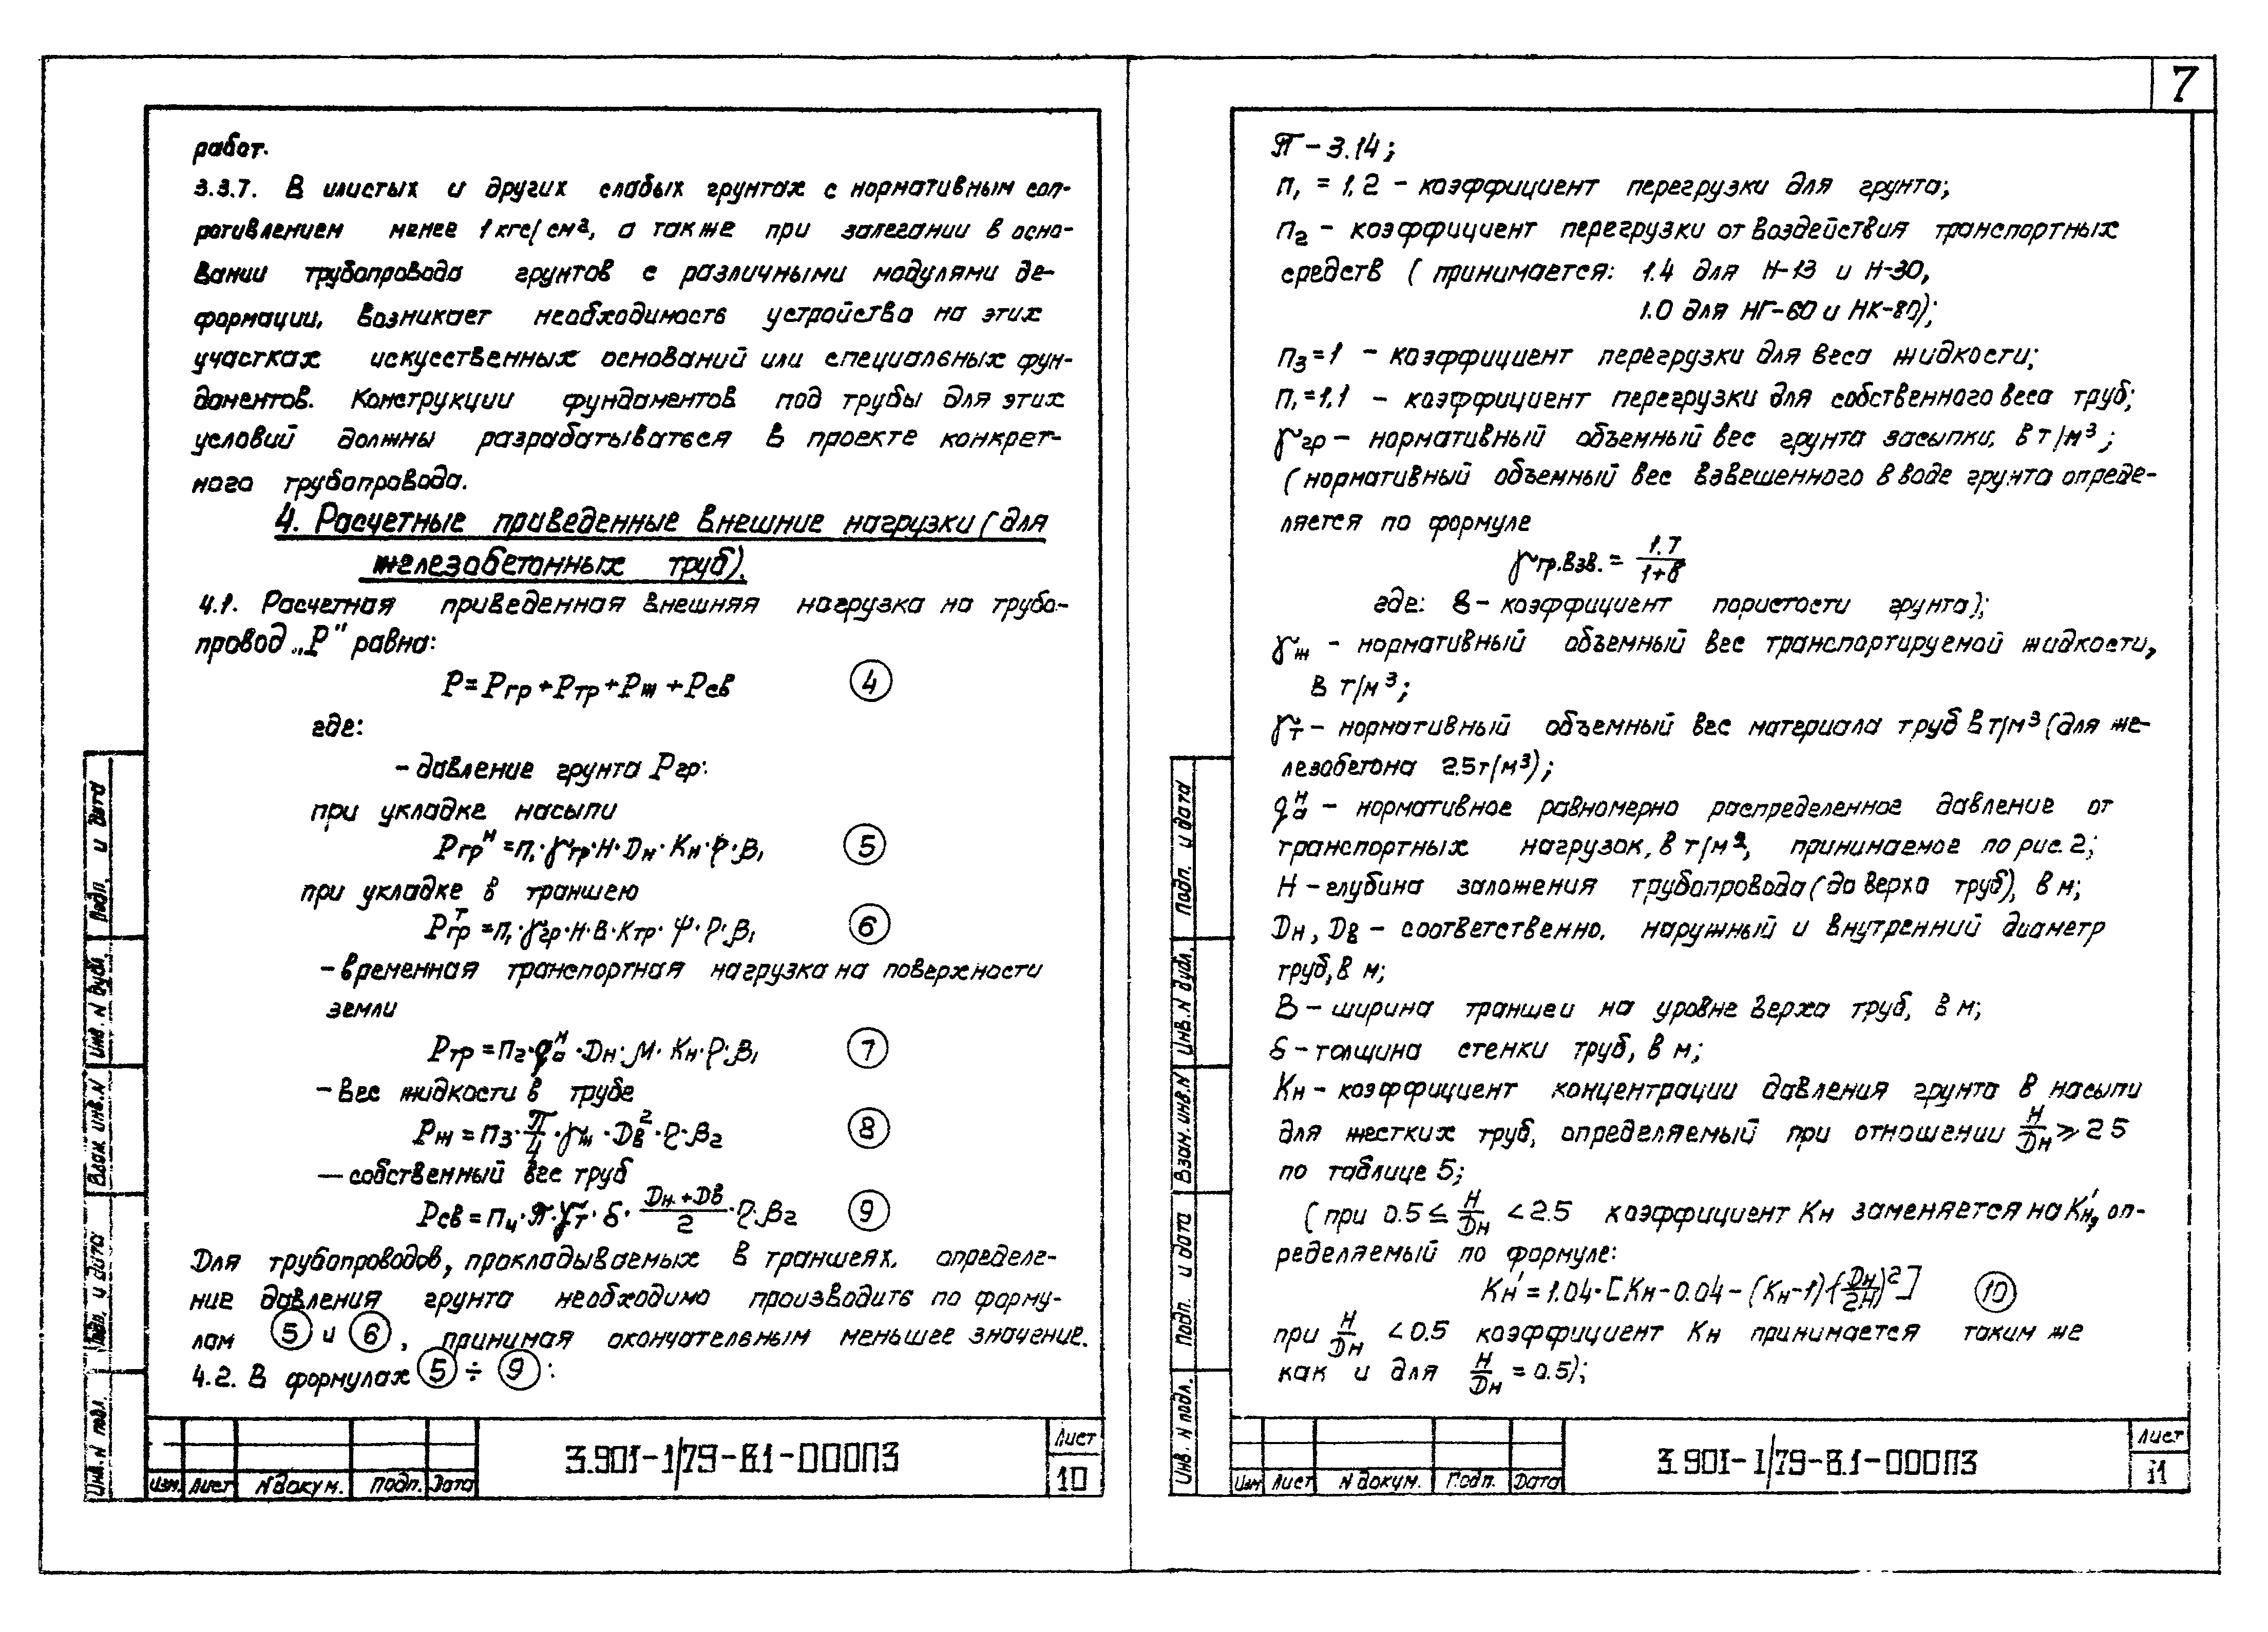 7
работ.
3.3.7. В илистых и других слабых грунтах с нормативным соп-
ротивлением менее 1 кгс/см², а также при залегании в осно-
вании трубопровода грунтов с различными модулями де-
формации, возникает необходимость устройства на этих
участках искусственных оснований или специальных фун-
даментов. Конструкции фундаментов под трубы для этих
условий должны разрабатываться в проекте конкрет-
ного трубопровода.
4. Расчетные приведенные внешние нагрузки (для
железобетонных труб).
4.1. Расчетная приведенная внешняя нагрузка на трубо-
провод „Р" равна:
Р = Ргр + Ртр + Рж + Рсв (4)
где:
- давление грунта Ргр:
при укладке насыпи
Ргрᴴ = п₁·γгр·Н·Dн·Кн·ρ·β₁ (5)
при укладке в траншею
Ргрᵀ = п₁·γгр·Н·В·Ктр·ψ·ρ·β₁ (6)
- временная транспортная нагрузка на поверхности
земли
Ртр = п₂·qᴴₐ·Dн·μ·Кн·ρ·β₁ (7)
- вес жидкости в трубе
Рж = п₃·π/4·γж·Dв²·ρ·β₂ (8)
— собственный вес труб
Рсв = п₄·π·γт·δ·(Dн+Dв)/2·ρ·β₂ (9)
Для трубопроводов, прокладываемых в траншеях, определе-
ние давления грунта необходимо производить по форму-
лам (5) и (6), принимая окончательным меньшее значение.
4.2. В формулах (5) ÷ (9):
Подп. и дата
Инв. N дубл
Взам инв. N
Подп. и дата
Инв. N подл.
Изм. Лист N докум. Подп. Дата
3.901-1/79-В.1-000ПЗ
Лист
10
π - 3.14;
п₁ = 1.2 - коэффициент перегрузки для грунта;
п₂ - коэффициент перегрузки от воздействия транспортных
средств (принимается: 1.4 для Н-13 и Н-30,
1.0 для НГ-60 и НК-80);
п₃=1 - коэффициент перегрузки для веса жидкости;
п₁=1,1 - коэффициент перегрузки для собственного веса труб;
γгр - нормативный объемный вес грунта засыпки, в т/м³;
(нормативный объемный вес взвешенного в воде грунта опреде-
ляется по формуле
γгр.взв. = 1.7/(1+в)
где: в - коэффициент пористости грунта);
γж - нормативный объемный вес транспортируемой жидкости,
в т/м³;
γт - нормативный объемный вес материала труб в т/м³ (для же-
лезобетона 2.5т/м³);
qᴴₐ - нормативное равномерно распределенное давление от
транспортных нагрузок, в т/м², принимаемое по рис. 2;
Н - глубина заложения трубопровода (до верха труб), в м;
Dн, Dв - соответственно, наружный и внутренний диаметр
труб, в м;
В - ширина траншеи на уровне верха труб, в м;
δ - толщина стенки труб, в м;
Кн - коэффициент концентрации давления грунта в насыпи
для жестких труб, определяемый при отношении Н/Dн ⩾ 2.5
по таблице 5;
(при 0.5 ≤ Н/Dн < 2.5 коэффициент Кн заменяется на Кн', оп-
ределяемый по формуле:
Кн' = 1.04·[Кн-0.04-(Кн-1)·(Dн/2Н)²] (10)
при Н/Dн < 0.5 коэффициент Кн принимается таким же
как и для Н/Dн = 0.5);
Подп. и дата
Инв. N дубл.
Взам. инв. N
Подп. и дата
Инв. N подл.
Изм Лист N докум. Подп. Дата
3.901-1/79-В.1-000ПЗ
Лист
11